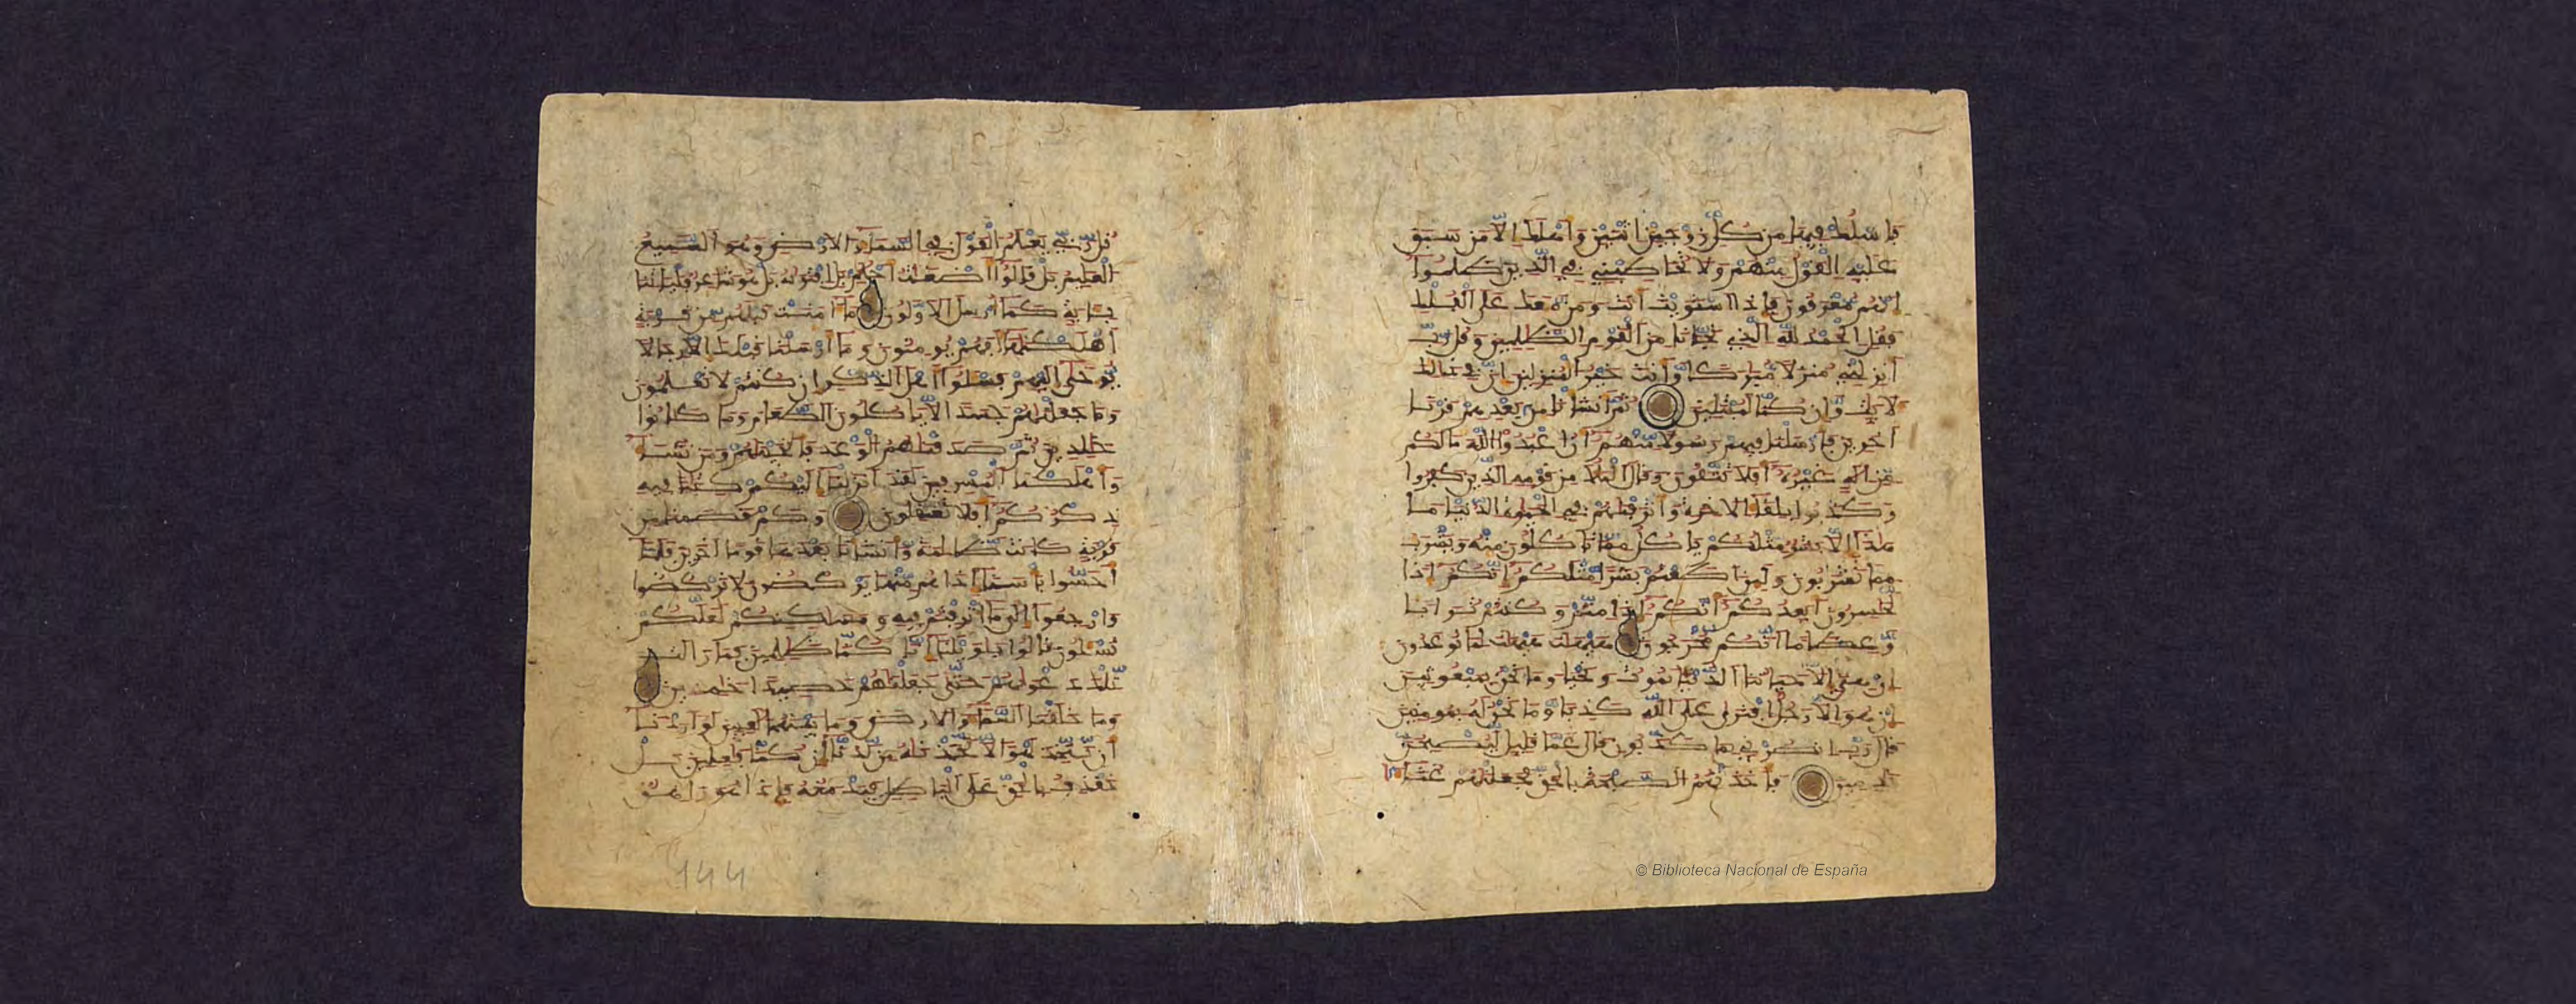 فاسلك فيها من كل زوجين اثنين واهلك الا من سبق
عليه القول منهم ولا تخاطبني في الذين ظلموا
انهم مغرقون فاذا استويت انت ومن معك على الفلك
فقل الحمد لله الذي نجانا من القوم الظلمين وقل رب
انزلني منزلا مباركا وانت خير المنزلين ان في ذلك
لايت وان كنا لمبتلين ثم انشانا من بعدهم قرنا
اخرين فارسلنا فيهم رسولا منهم ان اعبدوا الله ما لكم
من اله غيره افلا تتقون وقال الملا من قومه الذين كفروا
وكذبوا بلقاء الاخرة واترفنهم في الحيوة الدنيا ما
هذا الا بشر مثلكم ياكل مما تاكلون منه ويشرب
مما تشربون ولين اطعتم بشرا مثلكم انكم اذا
لخسرون ايعدكم انكم اذا متم وكنتم ترابا
وعظاما انكم مخرجون هيهات هيهات لما توعدون
ان هي الا حياتنا الدنيا نموت ونحيا وما نحن بمبعوثين
ان هو الا رجل افترى على الله كذبا وما نحن له بمومنين
قال رب انصرني بما كذبون قال عما قليل ليصبحن
ندمين فاخذتهم الصيحة بالحق فجعلنهم غثاء
قل ربي يعلم القول في السماء والارض وهو السميع
العليم بل قالوا اضغث احلم بل افتريه بل هو شاعر فلياتنا
باية كما ارسل الاولون ما امنت قبلهم من قرية
اهلكنها افهم يومنون وما ارسلنا قبلك الا رجالا
يوحى اليهم فسلوا اهل الذكر ان كنتم لا تعلمون
وما جعلنهم جسدا لا ياكلون الطعام وما كانوا
خلدين ثم صدقنهم الوعد فانجينهم ومن نشاء
واهلكنا المسرفين لقد انزلنا اليكم كتبا فيه
ذكركم افلا تعقلون وكم قصمنا من
قرية كانت ظالمة وانشانا بعدها قوما اخرين فلما
احسوا باسنا اذا هم منها يركضون لا تركضوا
وارجعوا الى ما اترفتم فيه ومسكنكم لعلكم
تسلون قالوا يويلنا انا كنا ظلمين فما زالت
تلك دعويهم حتى جعلنهم حصيدا خمدين
وما خلقنا السماء والارض وما بينهما لعبين لو اردنا
ان نتخذ لهوا لاتخذنه من لدنا ان كنا فعلين بل
نقذف بالحق على البطل فيدمغه فاذا هو زاهق
144
© Biblioteca Nacional de España